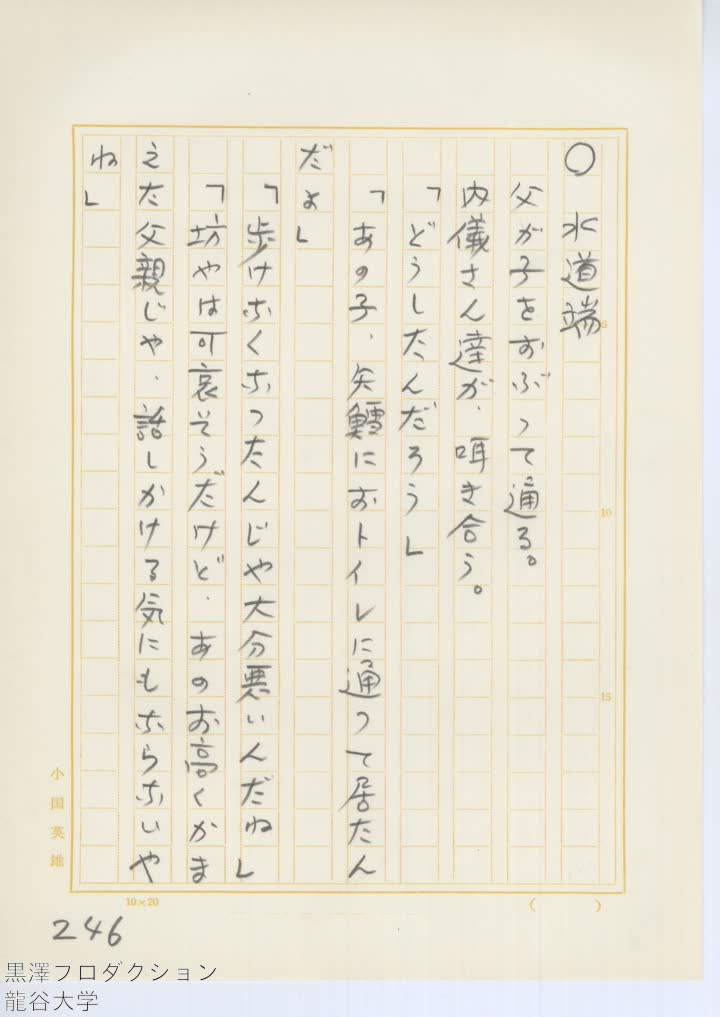 ○　水道端
父が子をおぶって通る。
内儀さん達が、囁き合う。
「どうしたんだろう」
「あの子、矢鱈におトイレに通って居たん
だよ」
「歩けなくなったんじゃ大分悪いんだね」
「坊やは可哀そうだけど、あのお高くかま
えた父親じゃ、話しかける気にもならないや
ね」
5
10
15
小国英雄
10×20
(　　)
246
黒澤プロダクション
龍谷大学